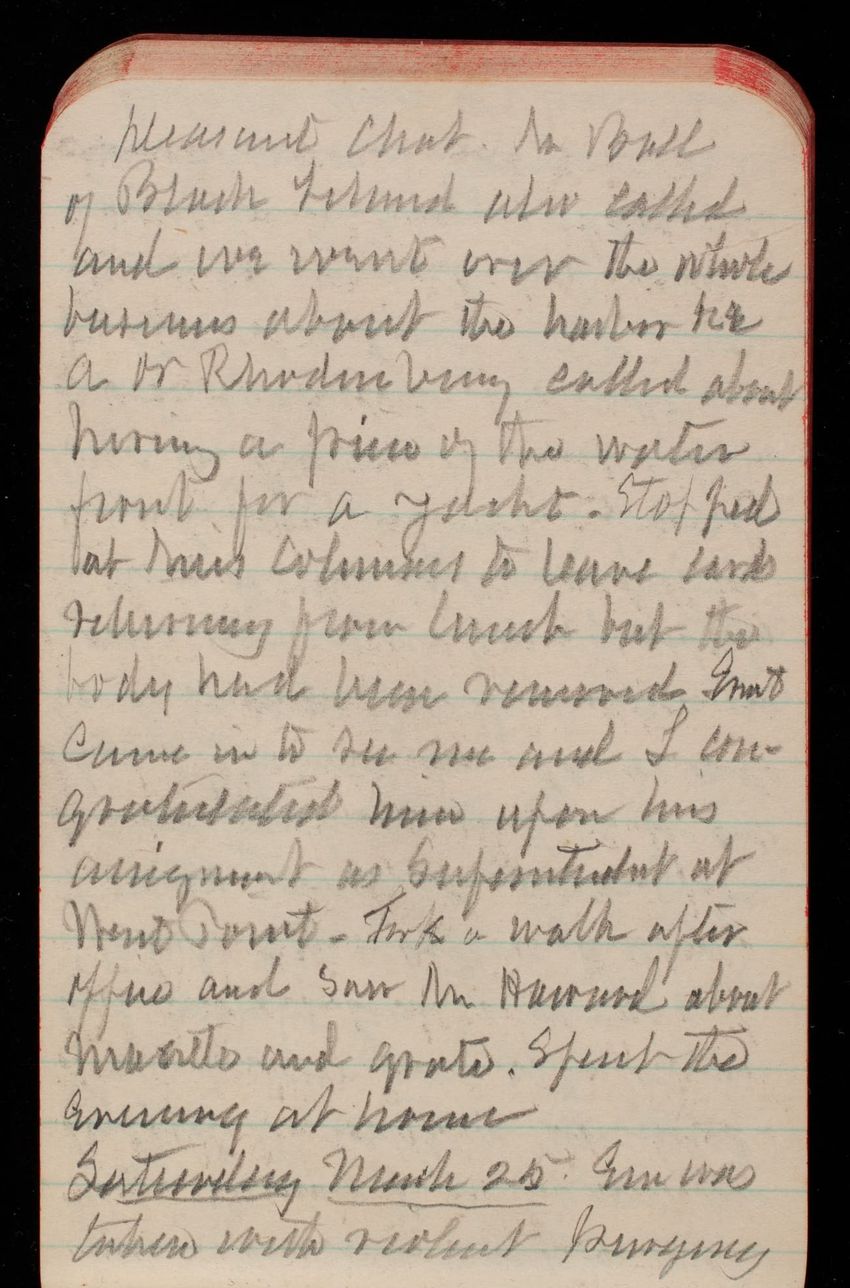 pleasant chat. Mr Ball
of Block Island also called
and we went over the whole
business about the harbor &c
A Dr called about
hiring a piece of the water
front for a yacht. Stopped
at to leave cards
returning from lunch but the
body had been removed Ernst
came in to see me and I con-
gratulated him upon his
assignment as Superintendent at
West Point - Took a walk after
office and saw Mr Howard about
mantels and grate. Spent the
Evening at home
Saturday March 25. Em was
taken with violent purging